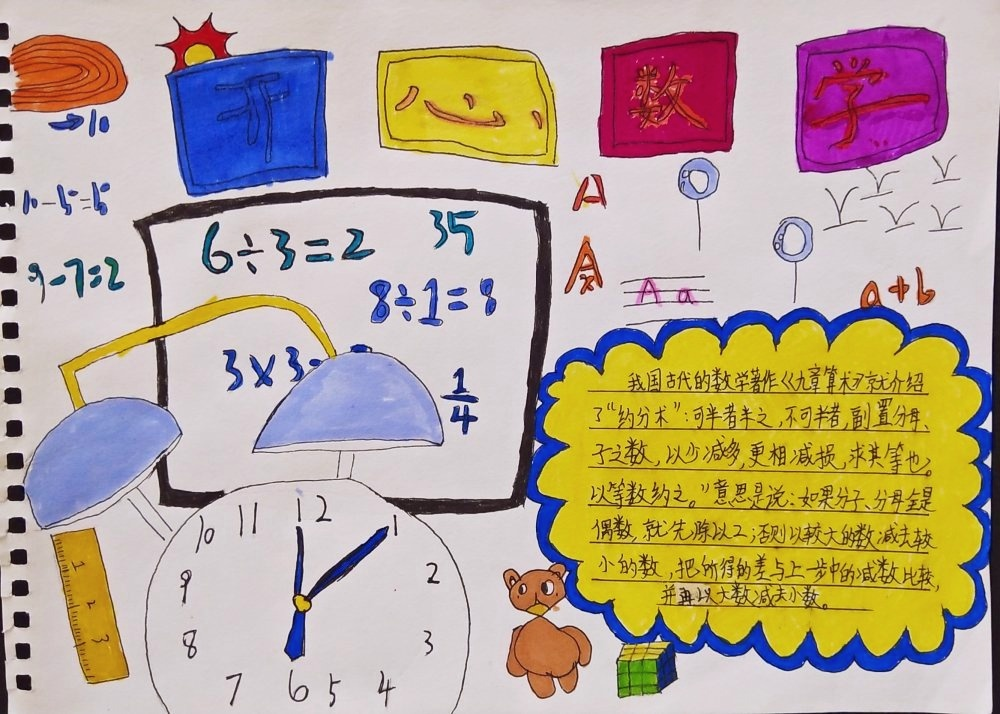 开心数学
→10
10-5=5
9-7=2
6÷3=2
35
8÷1=8
3×3=
1
4
A
A a
a+b
我国古代的数学著作《九章算术》就介绍
了“约分术”:可半者半之,不可半者,副置分母、
子之数,以少减多,更相减损,求其等也。
以等数约之。”意思是说:如果分子、分母全是
偶数,就先除以2;否则以较大的数减去较
小的数,把所得的差与上一步中的减数比较,
并再以大数减去小数。
10 11 12 1
9 2
8 3
7 6 5 4
1
2
3